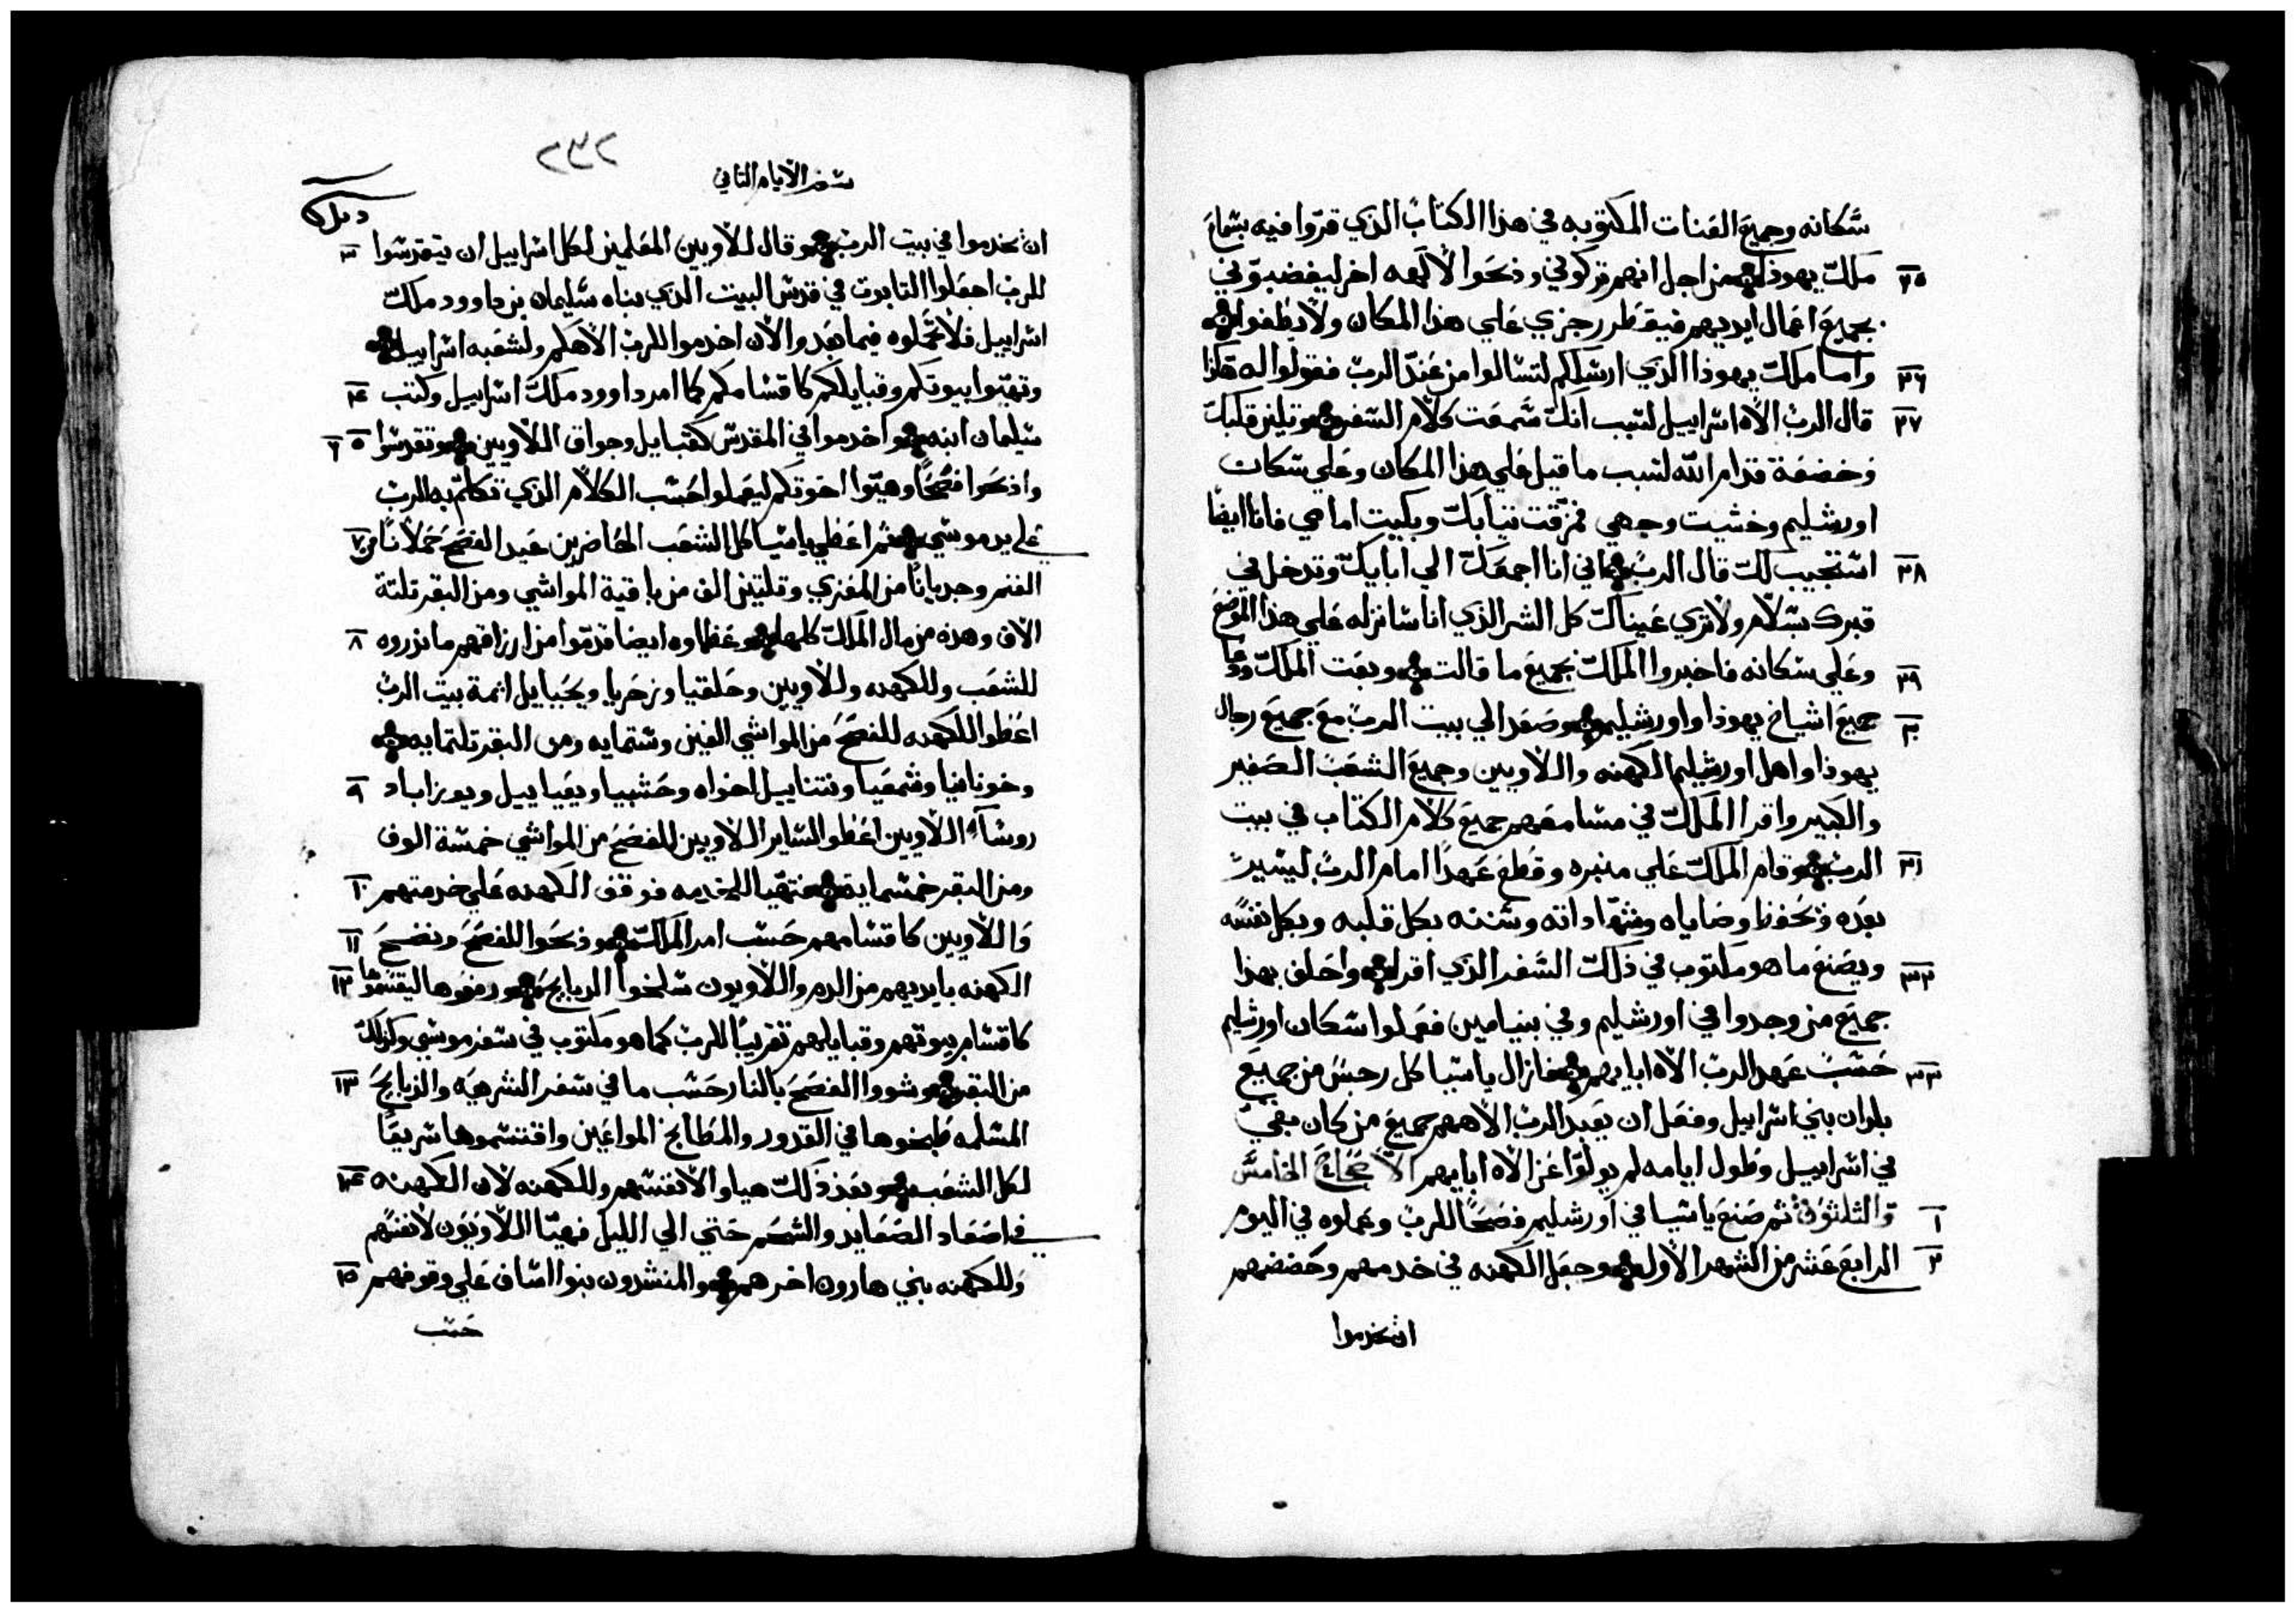 سكانه وجميع اللعنات المكتوبه في هذا الكتاب الذي قروا فيه بسماع
٢٥ ملك يهوذا من اجل انهم تركوني وذبحوا لالهه اخر ليغضبوني
بجميع اعمال ايديهم فيقطر رجزي علي هذا المكان ولا يطفوا
٢٦ واما ملك يهوذا الذي ارسلكم لتسالوا من عند الرب فقولوا له هكذا
٢٧ قال الرب الاه اسراييل لسبب انك سمعت كلام السفر وتلين قلبك
وخضعة قدام الله لسبب ما قيل علي هذا المكان وعلي سكان
اورشليم وخشيت وجهي فمزقت تيابك وبكيت امامي فانا ايضا
٢٨ استجيب لك قال الرب فاني انا اجمعك الي ابايك وتدخل في
قبرك بسلام ولا تري عيناك كل الشر الذي انا سانزله علي هذا الموضع
٢٩ وعلي سكانه فاخبروا الملك بجميع ما قالت وبعت الملك ودعا
٣٠ جميع اشياخ يهوذا واورشليم وصعد الي بيت الرب مع جميع رجال
يهوذا واهل اورشليم الكهنه واللاويين وجميع الشعب الصغير
والكبير واقرا الملك في مسامعهم جميع كلام الكتاب في بيت
٣١ الرب وقام الملك علي منبره وقطع عهدا امام الرب ليسير
بعده ويحفظ وصاياه وشهاداته وسننه بكل قلبه وبكل نفسه
٣٢ ويصنع ما هو مكتوب في ذلك السفر الذي اقراه واحلف بهذا
جميع من وجدوا في اورشليم وفي بنيامين فعملوا سكان اورشليم
٣٣ حسب عهد الرب الاه ابايهم فازال ياسيا كل رجس من جميع
بلدان بني اسراييل وفعل ان يعبد الرب الاههم جميع من كان بقي
في اسراييل وطول ايامه لم يولوا عن الاه ابايهم الاصحاح الخامس
١ والثلثون ثم صنع ياسيا في اورشليم فصحا للرب وعملوه في اليوم
٢ الرابع عشر من الشهر الاول وجعل الكهنه في خدمهم وحضضهم
ان يخدموا
٢٣٢
سفر الايام الثاني
ان يخدموا في بيت الرب وقال للاويين المعلمين لكل اسراييل ان يتقدسوا ٣
للرب اجعلوا التابوت في قدس البيت الذي بناه سليمان بن داوود ملك
اسراييل فلا تحملوه فيما بعد والان اخدموا للرب الاهكم ولشعبه اسراييل
وتهيوا بيوتكم وقبايلكم كاقسامكم كما امر داوود ملك اسراييل وكتب ٤
سليمان ابنه واخدموا في المقدس كقبايل وجواق اللاويين وتقدسوا ٥ ٦
واذبحوا فصحا وهيوا اخوتكم ليعملوا حسب الكلام الذي تكلم به الرب
علي يد موسي ثم اعطي ياسيا كل الشعب الحاضرين عيد الفصح حملانا من ٧
الغنم وجديانا من المعزي وتلتين الف من باقية المواشي ومن البقر تلتة
الاف وهذه من مال الملك كلها وعظماوه ايضا قدموا من ارزاقهم ما نذروه ٨
للشعب وللكهنه وللاويين وحلقيا وزخريا ويحيايل ايمة بيت الرب
اعطوا للكهنه للفصح من المواشي الفين وستمايه ومن البقر تلتمايه
وخونانيا وشمعيا ونتناييل اخواه وحشبيا ويعياييل ويوزاباد ٩
روسآء اللاويين اعطوا لساير اللاويين للفصح من المواشي خمسة الوف
ومن البقر خمسمايه فتهيا للخدمه فوقف الكهنه علي خدمتهم ١٠
واللاويين كاقسامهم حسب امر الملك وذبحوا للفصح ونضح ١١
الكهنه بايديهم من الدم واللاويون سلخوا الدبايح ورفعوها ليقتسموها ١٢
كاقسام بيوتهم وقبايلهم تقريبا للرب كما هو مكتوب في سفر موسي وكذلك
من البقر وشووا الفصح بالنار حسب ما في سفر الشريعه والذبايح ١٣
المسلمه طبخوها في القدور والمطابخ المواعين واقتسموها سريعا
لكل الشعب وبعد ذلك هياوا لانفسهم وللكهنه لان الكهنه ١٤
في اصعاد الصعايد والشحم حتي الي الليل فهيا اللاويون لانفسهم
وللكهنه بني هارون اخرهم والمنشدون بنوا اساف علي وقوفهم ١٥
حسب